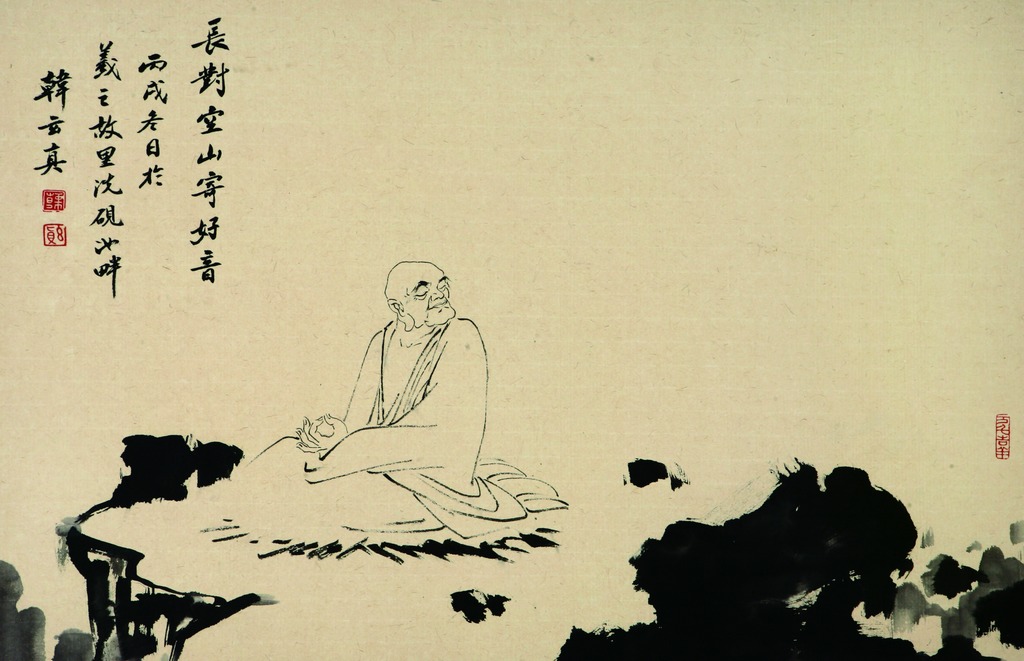 長對空山寄好音
丙戌冬日於
羲之故里洗硯池畔
韓云真